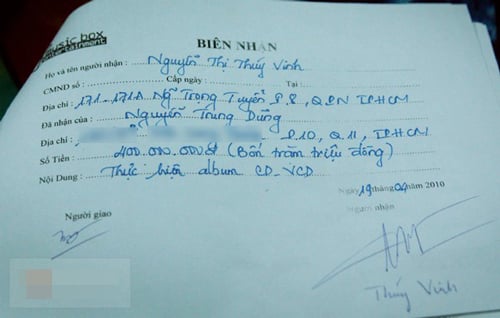 music box
entertainment
BIÊN NHẬN
Họ và tên người nhận : Nguyễn Thị Thúy Vinh
CMND số : Cấp ngày : Tại :
Địa chỉ : 171-171A Ng Trọng Tuyển P.8, Q.PN TPHCM
Đã nhận của : Nguyễn Trung Dũng
Địa chỉ : P.10, Q.11, TPHCM
Số Tiền : 400.000.000đ (Bốn trăm triệu đồng)
Nội Dung : Thực hiện album CD-VCD
Ngày 19 tháng 04 năm 2010
Người giao Người nhận
Thúy Vinh